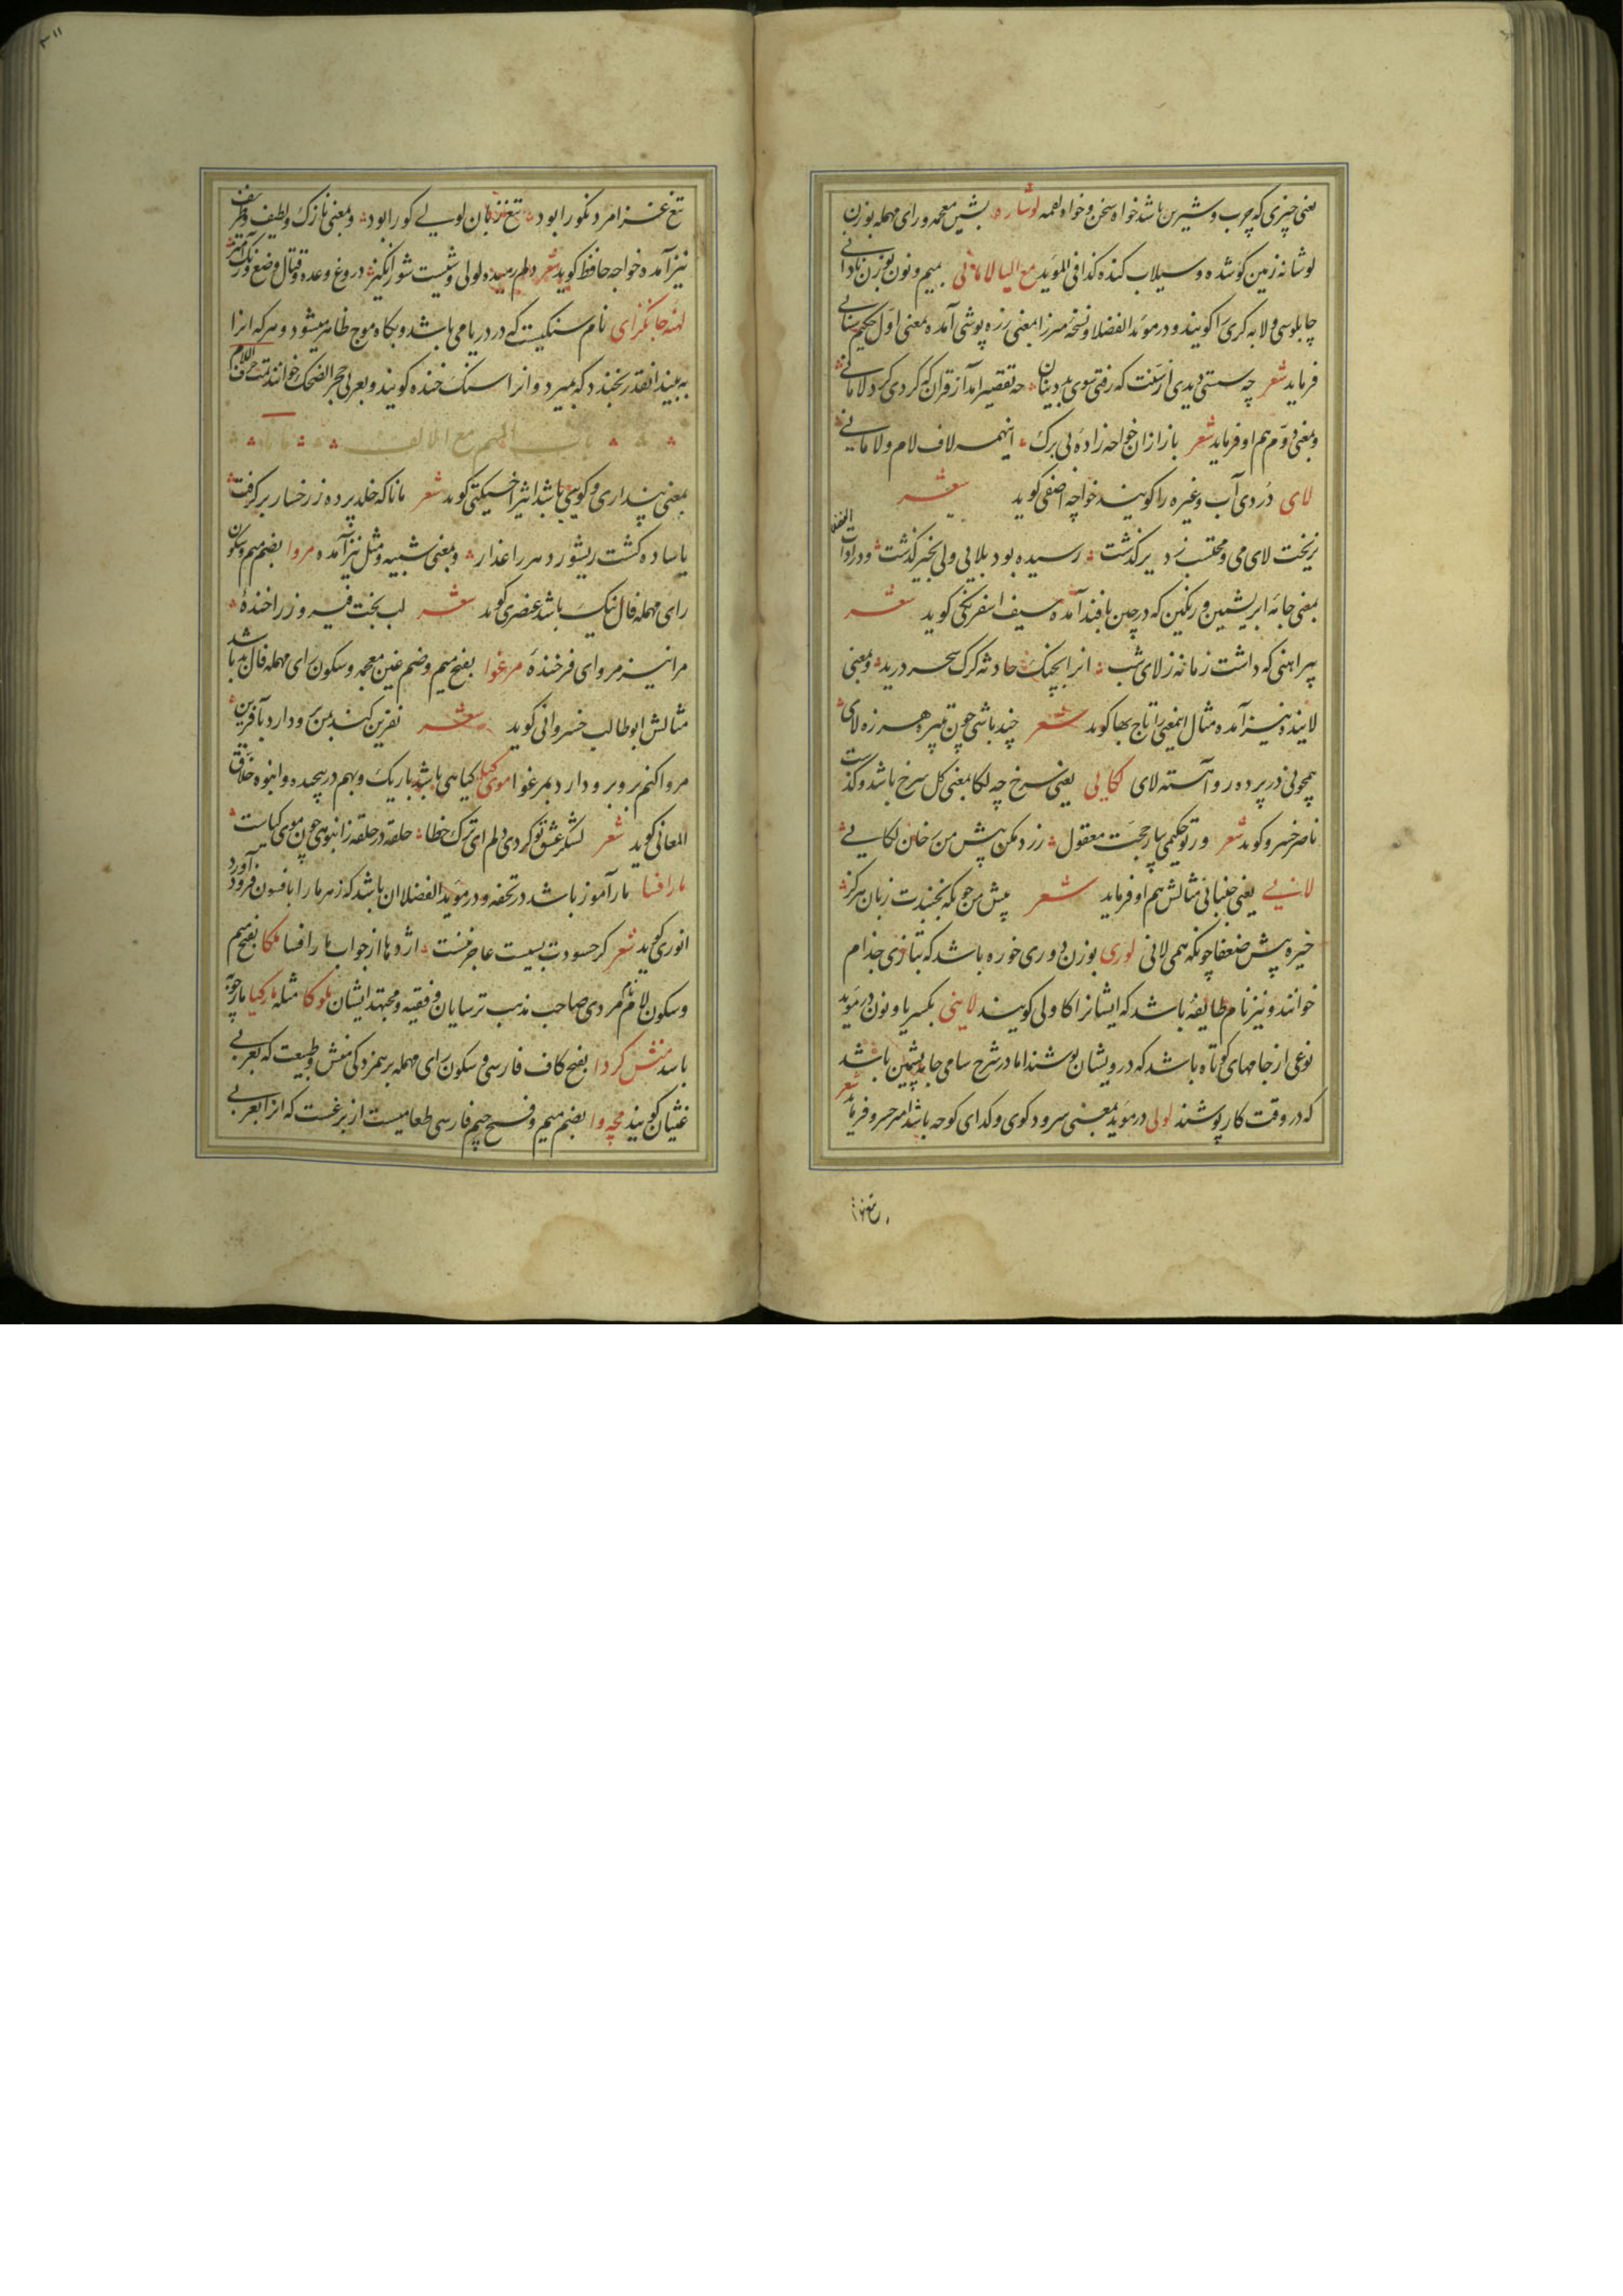 یعنی چیزی که چرب و شیرین باشد خواه سخن و خواه لقمه لوشاره بشین معجمه و رای مهمله بوزن
لوشانه زمین کوشده و سیلاب کنده کذا فی المؤید مع الیا لامانی بمیم و نون بوزن نادانی
چاپلوسی و لابه کری را کویند و در مؤید الفضلا و نسخه میرزا بمعنی زره پوشی آمده بمعنی اول حکیم سنایی
فرماید شعر چه سستی دیدی از سنت که رفتی سوی بیدینان چه تقصیر آمد از قران که کردی کرد لامانی
و بمعنی دوم هم او فرماید شعر باز ازان خواجه زاده بی برک اینهمه لاف لام و لامانی
لای دردی آب و غیره را کویند خواجه آصفی کوید شعر
بریخت لای می و محتسب ز دیر کذشت رسیده بود بلایی ولی بخیر کذشت و در ادات الفضلا
بمعنی جامه ابریشمین و رنکین که در چین بافند آمده سیف اسفرنکی کوید شعر
پیراهنی که داشت زمانه ز لای شب انرا بچنک حادثه کرک سحر درید و بمعنی
لاینده نیز آمده مثال اینمعنی را تاج بها کوید شعر چند باشی چون تبیره هرزه لای
همچونی در پرده رو آهسته لای لکایی یعنی سرخ چه لکا بمعنی کل سرخ باشد و کذشت
ناصر خسرو کوید شعر ور تو حکیمی بیار حجت معقول زرد مکن پیش من رخان لکایی
لانیی یعنی جنبانی مثالش هم او فرماید شعر پیش من چونکه نجنبدت زبان هرکز
خیره پیش ضعفا چونکه همی لانی لوری بوزن دوری خوره باشد که بتازی جذام
خوانند و نیز نام طایفه باشد که ایشانرا کاولی کویند لاینی بکسر یا و نون در مؤید
نوعی از جامهای کوتاه باشد که درویشان پوشند اما در شرح سامی جامه پشمین باشد
که در وقت کار پوشند لولی در مؤید بمعنی سرود کوی و کدای کوچه باشد امیر خسرو فرماید شعر
تیغ غزا مرد نکو را بود تیغ زبان لولی کو را بود و بمعنی نازک و لطیف و ظریف
نیز آمده خواجه حافظ کوید شعر دلم رمیده لولی وشیست شور انکیز دروغ وعده و قتال وضع و رنک آمیز
لهنه جانکزای نام سنکیست که در دریا می باشد و بکاه موج ظاهر میشود و هر که انرا
به بیند انقدر بخندد که بمیرد و انرا سنک خنده کویند و بعربی حجر الضحک خوانند تمت حرف اللام
باب المیم مع الالف مانا
بمعنی پنداری و کویی باشد اثیر اخسیکتی کوید شعر مانا که خلد پرده ز رخسار برکرفت
یا ساده کشت ریشور دهر را عذار و بمعنی شبیه و مثل نیز آمده مروا بضم میم و سکون
رای مهمله فال نیک باشد عنصری کوید شعر لب بخت فیروز را خنده
مرا نیز مروای فرخنده مرغوا بفتح میم و ضم غین معجمه و سکون رای مهمله فال بد باشد
مثالش ابو طالب خسروانی کوید شعر نفرین کند بمن بر و دارد بآفرین
مروا کنم برو بر و دارد بمرغوا موی کیا کیاهی باشد باریک و بهم در پیچیده و انبوه خلاق
المعانی کوید شعر لشکر عشق تو کرد دلم ای ترک خطا حلقه در حلقه ز انبوهی چون موی کیاست
مار افسا مار آموز باشد در تحفه و در مؤید الفضلا ان باشد که زهر مار را بافسون فرود آورد
انوری کوید شعر کر حسودت بسیست عاجز نیست اژدها از جواب مار افسا ملکا بفتح میم
و سکون لام نام مردی صاحب مذهب ترسایان و فقیه و مجتهد ایشان ملوکا مثله مارکیا مارچوبه
باشد منش کردا بفتح کاف فارسی و سکون رای مهمله بر همزدکی منش و طبیعت که بعربی
غثیان کویند مچه وا بضم میم و فتح جیم فارسی طعامیست از برغست که انرا بعربی
تیغ غزا